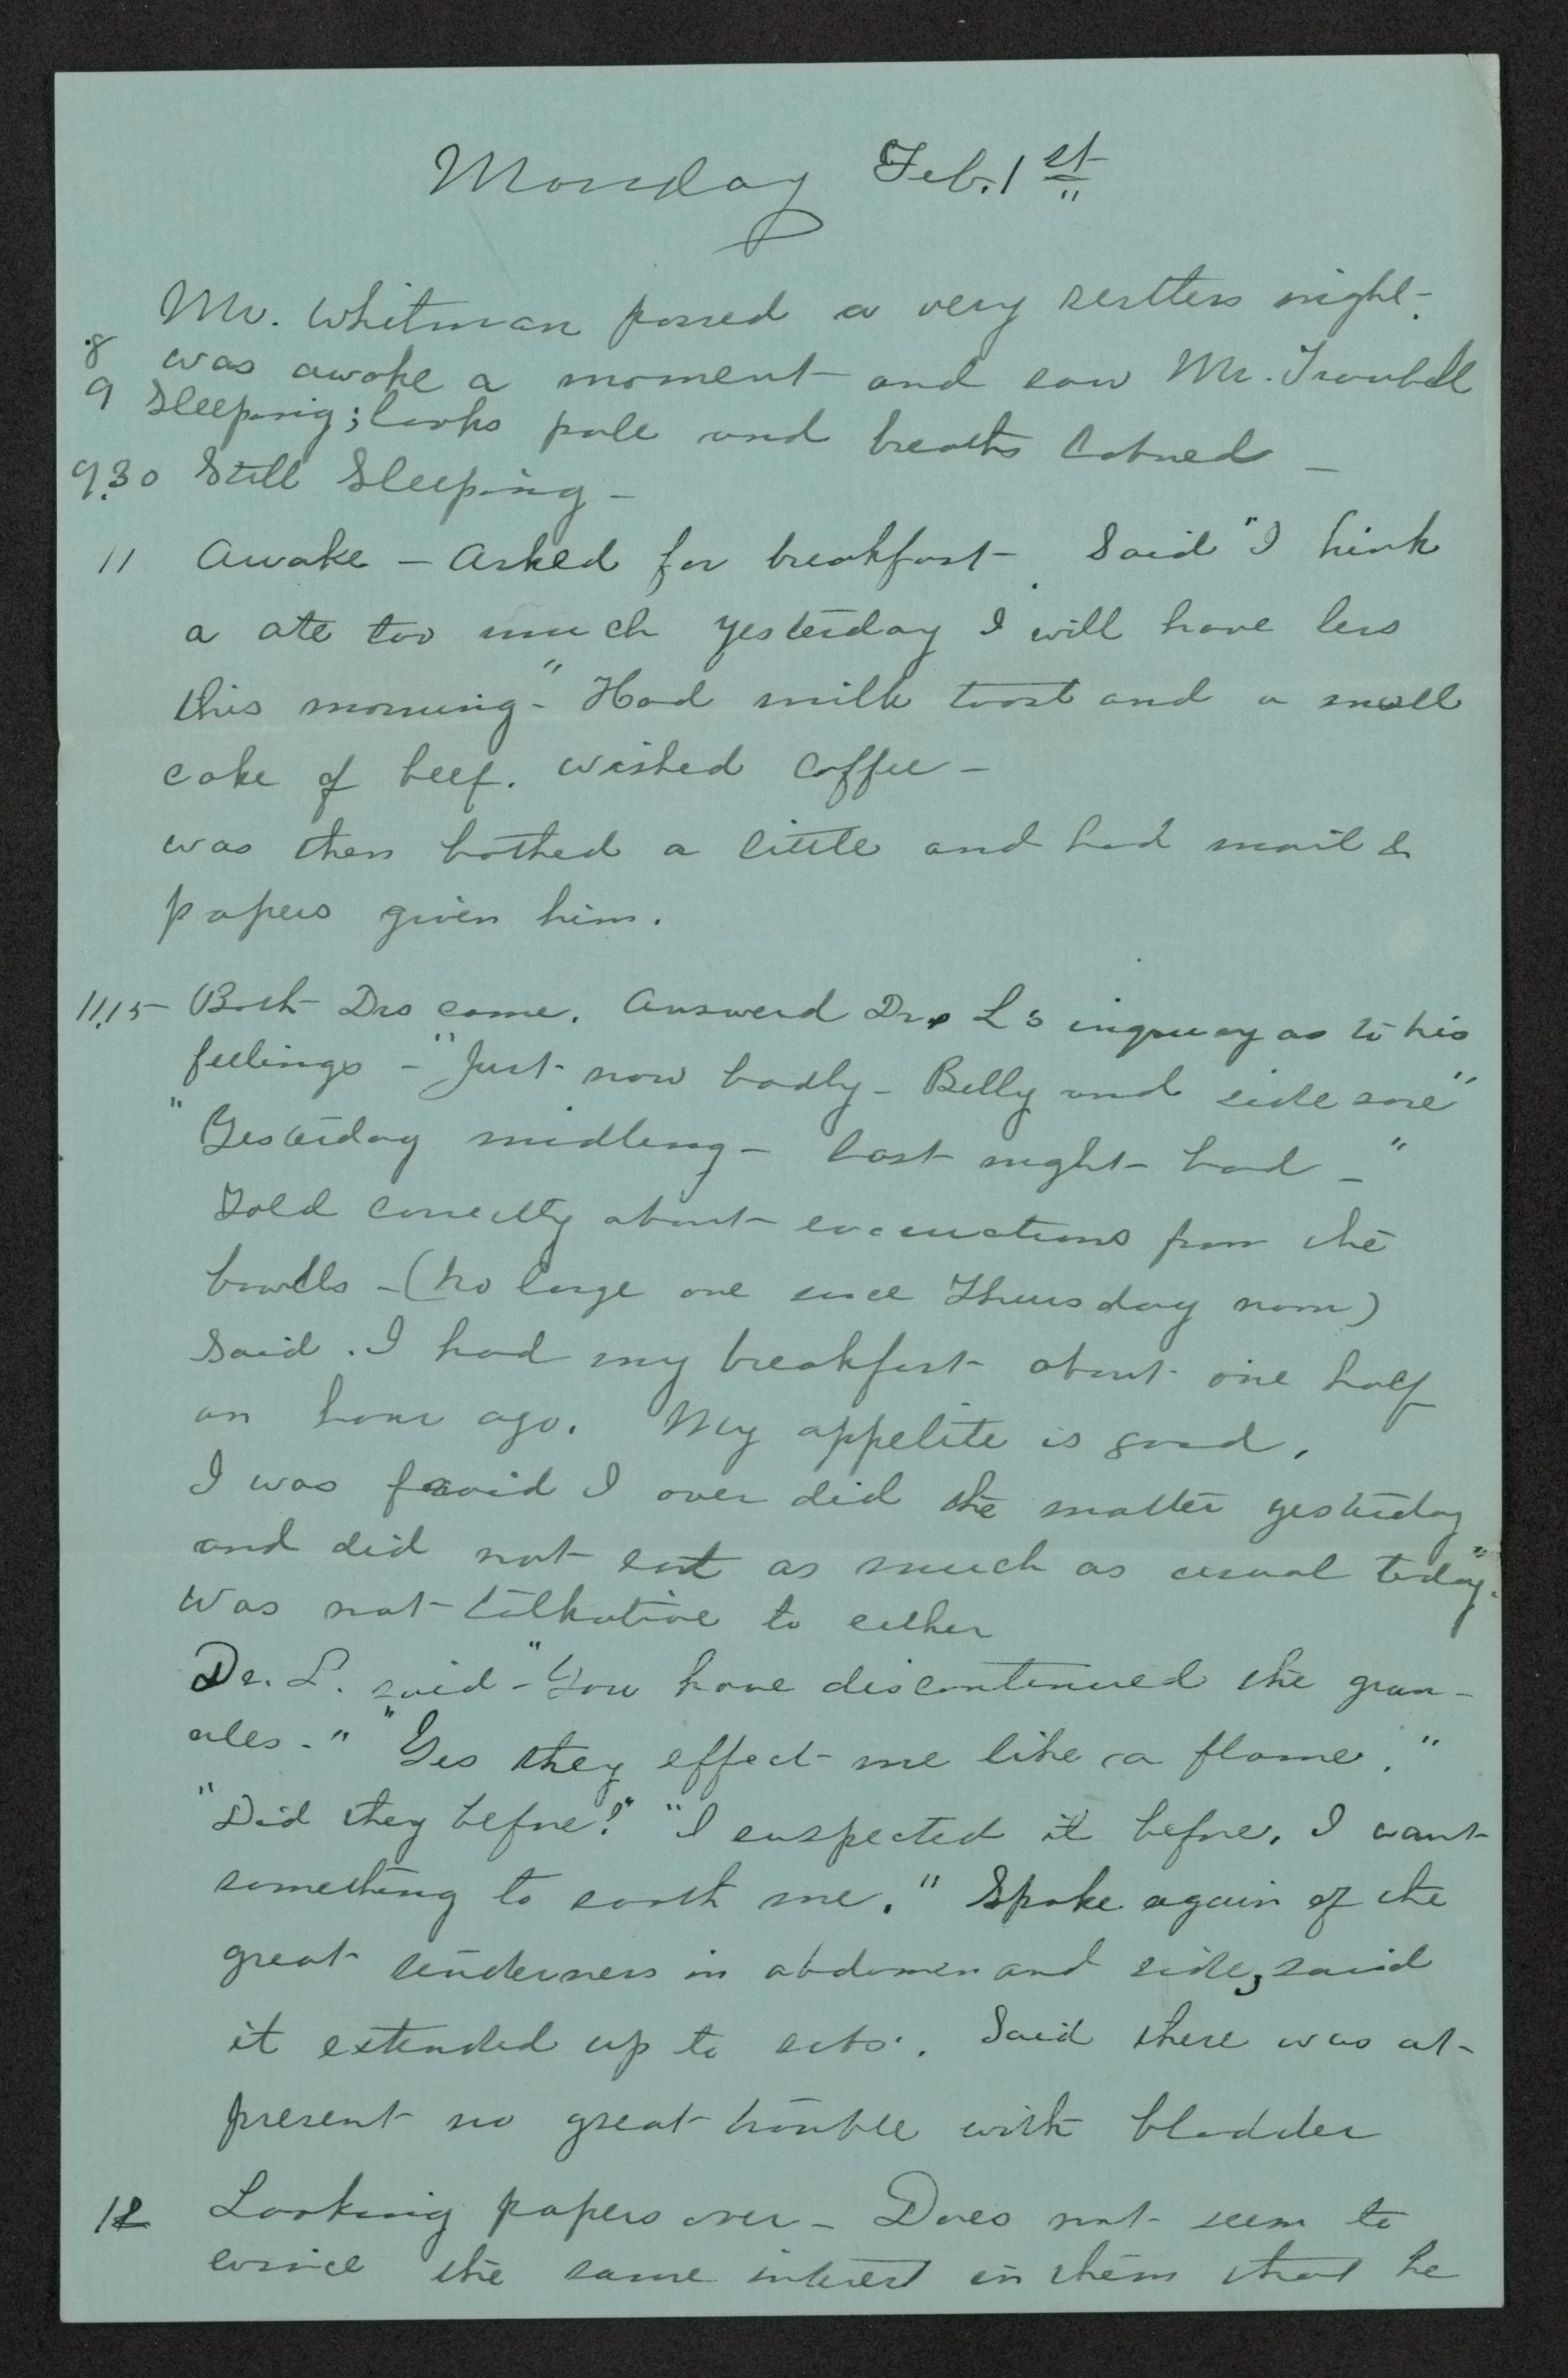 Monday Feb. 1st
Mr. Whitman passed a very restless night -
8 was awake a moment and saw Mr. Traubel
9 Sleeping; looks pale and breaths labored -
9.30 Still Sleeping -
11 Awake - Asked for breakfast. Said "I think
a ate too much yesterday I will have less
this morning -" Had milk toast and a small
cake of beef. wished coffee -
was then bathed a little and had mail &
papers given him.
11.15 Both Drs came. Answerd Dr. Ls inquiry as to his
feelings - "Just now badly - Belly and side sore"
"Yesterday midling - last night bad -"
Told correctly about evacuations from the
bowlls - (no large one since Thursday norn)
Said. I had my breakfast about one half
an hour ago. My appetite is good.
I was fraid I over did the matter yesterday
and did not eat as much as usual today."
Was not talkative to either
Dr. L. said - "You have discontinued the gran-
ules -" "Yes they effect me like a flame."
"Did they before?" "I suspected it before. I want
something to sooth me." Spoke again of the
great tenderness in abdomen and side, said
it extended up to ribs. Said there was at
present no great trouble with bladder
12 Looking papers over - Does not seem to
evince the same interest in them that he